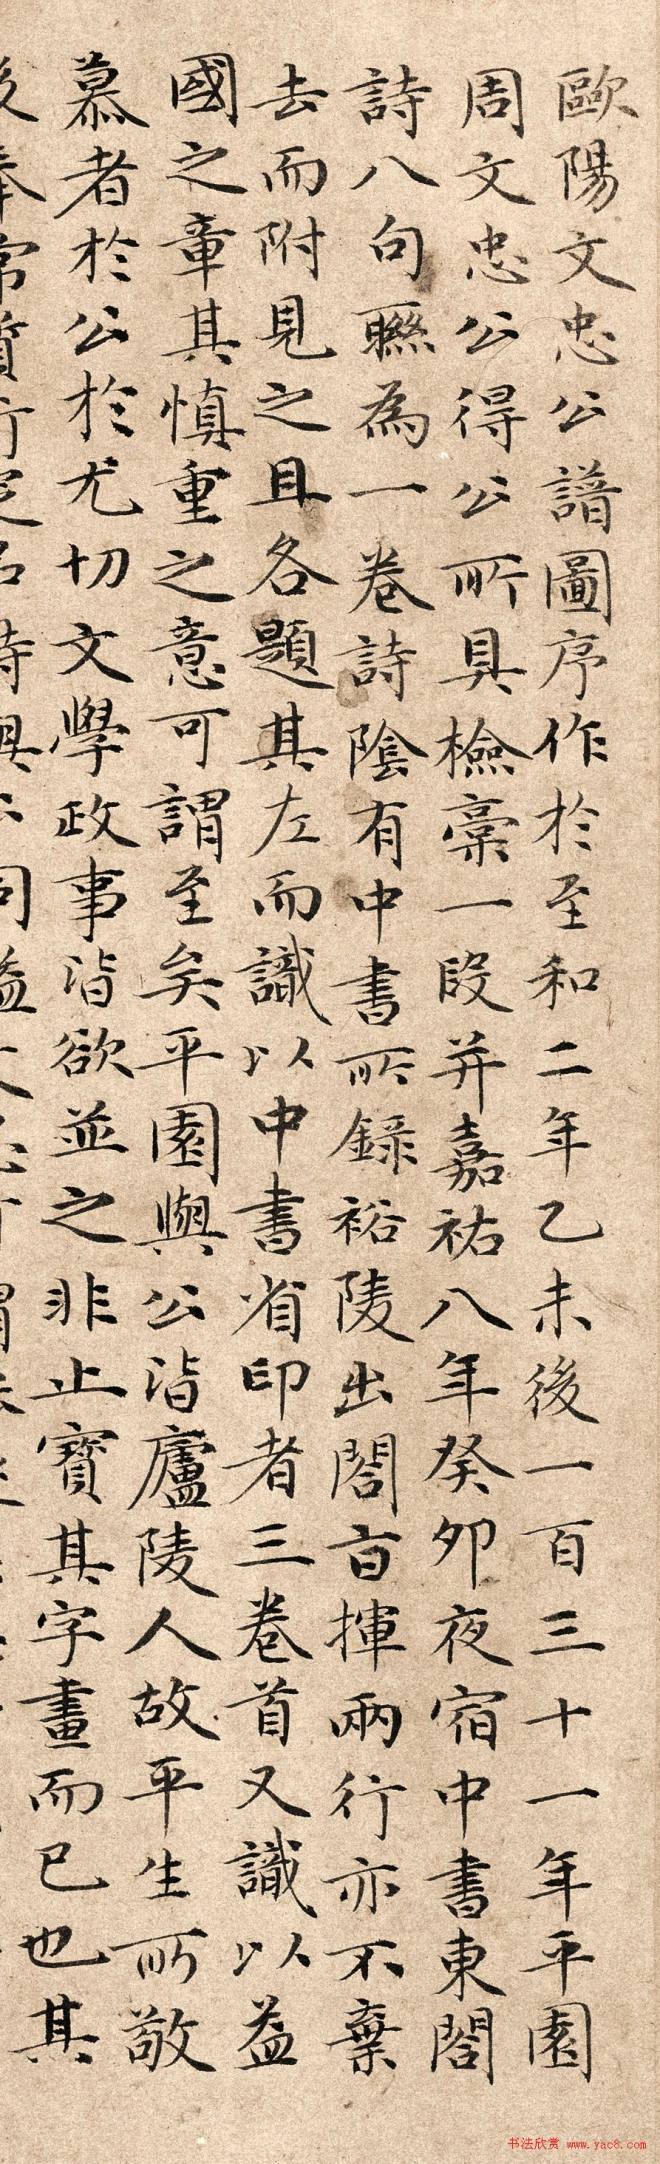 歐陽文忠公譜圖序作於至和二年乙未後一百三十一年平園
周文忠公得公所具檢稾一段并嘉祐八年癸卯夜宿中書東閤
詩八句聯為一卷詩陰有中書所錄裕陵出閤旨揮兩行亦不棄
去而附見之且各題其左而識以中書省印者三卷首又識以益
國之章其慎重之意可謂至矣平園與公皆廬陵人故平生所敬
慕者於公於尤切文學政事皆欲並之非止寶其字畫而已也其
书法欣赏 www.yac8.com